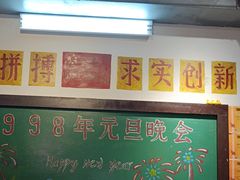 拼搏 求实创新
998年元旦晚会
Happy new year